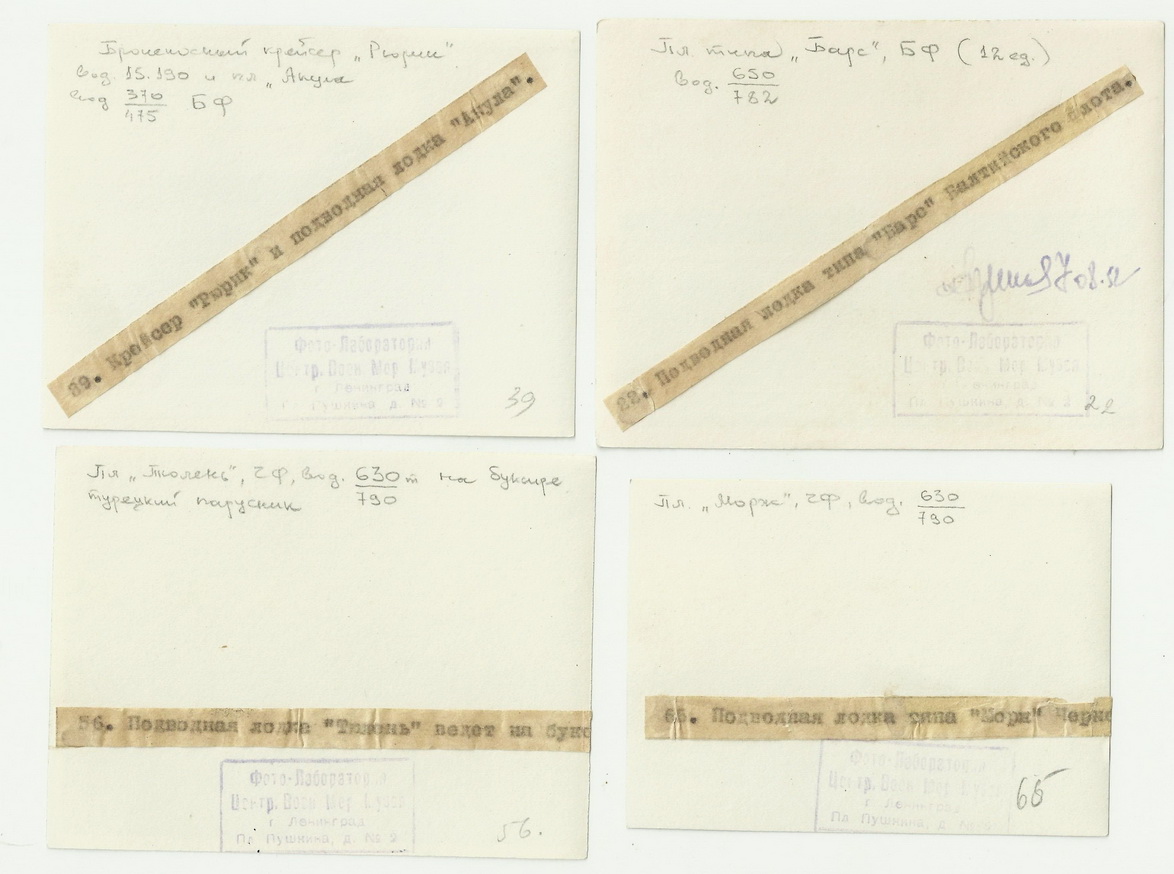 Броненосный крейсер „Рюрик“
вод. 15.190 и пл „Акула
вод 370/475 БФ
39. Крейсер "Рюрик" и подводная лодка "Акула".
Фото-Лаборатория
Центр. Воен Мор Музея
г Ленинград
Пл Пушкина д. № 2
39
Пл типа „Барс“, БФ (12 ед.)
вод. 650/782
22. Подводная лодка типа "Барс" Балтийского флота.
Фото-Лаборатория
Центр. Воен Мор Музея
Ленинград
Пл Пушкина, д. № 2
22
Пл „Тюлень“, ЧФ, вод. 630/790 т на буксире
турецкий парусник
56. Подводная лодка "Тюлень" ведет на букс
Фото-Лаборатория
Центр. Воен Мор Музея
г Ленинград
Пл Пушкина, д. № 2
56.
Пл. „Морж“, ЧФ, вод. 630/790
65. Подводная лодка типа "Морж" Черно
Фото-Лаборатория
Центр. Воен Мор Музея
г Ленинград
Пл Пушкина, д. №
65